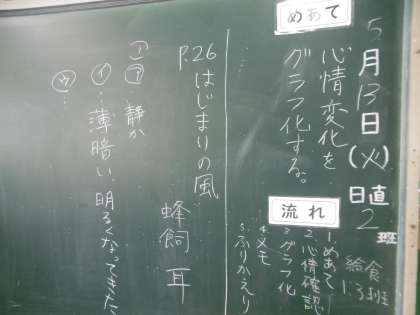 5月13日(火)
日直 2班
給食 1.3班
めあて
心情変化を
グラフ化する。
流れ
1.めあて
2.心情確認
3.グラフ化
4.メモ
5.ふりかえり
P.26 はじまりの風
蜂飼 耳
①㋐ 静か
㋑…薄暗い、明るくなってきた
㋒…